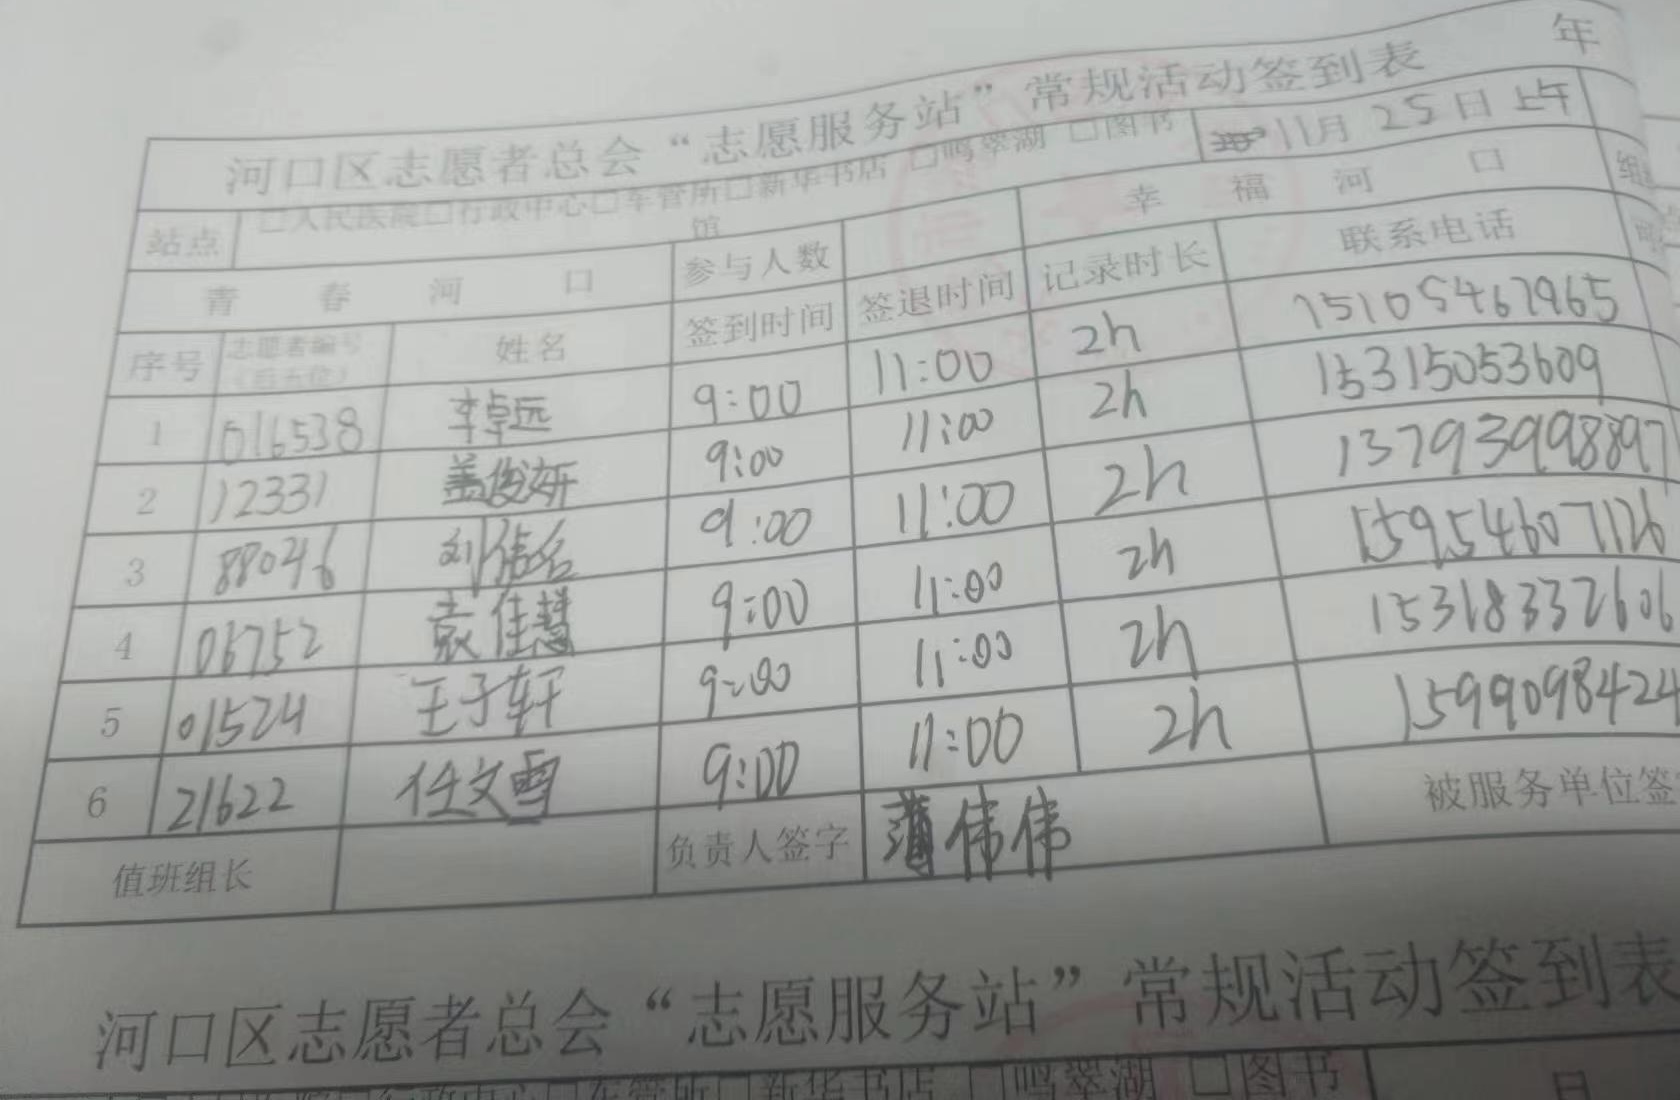 河口区志愿者总会“志愿服务站”常规活动签到表
站点 □人民医院□行政中心□车管所□新华书店 □鸣翠湖 □图书馆 年 11月 25日 上午
青春河口 参与人数 幸福河口
序号 志愿者编号（后五位） 姓名 签到时间 签退时间 记录时长 联系电话
1 016538 卓远 9:00 11:00 2h 15105467965
2 12331 盖俊妍 9:00 11:00 2h 15315053609
3 88046 刘名 9:00 11:00 2h 13793998897
4 06752 袁佳慧 9:00 11:00 2h 15954607126
5 01524 王子轩 9:00 11:00 2h 15318332606
6 21622 任文雪 9:00 11:00 2h 1599098424
值班组长 负责人签字 薄伟伟 被服务单位签
河口区志愿者总会“志愿服务站”常规活动签到表
□行政中心□车管所□新华书店 □鸣翠湖 □图书 日